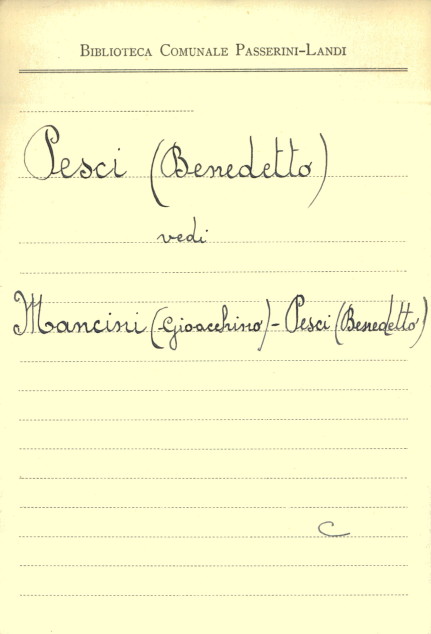 Biblioteca Comunale Passerini-Landi
Pesci (Benedetto)
vedi
Mancini (Gioacchino) - Pesci (Benedetto)
C